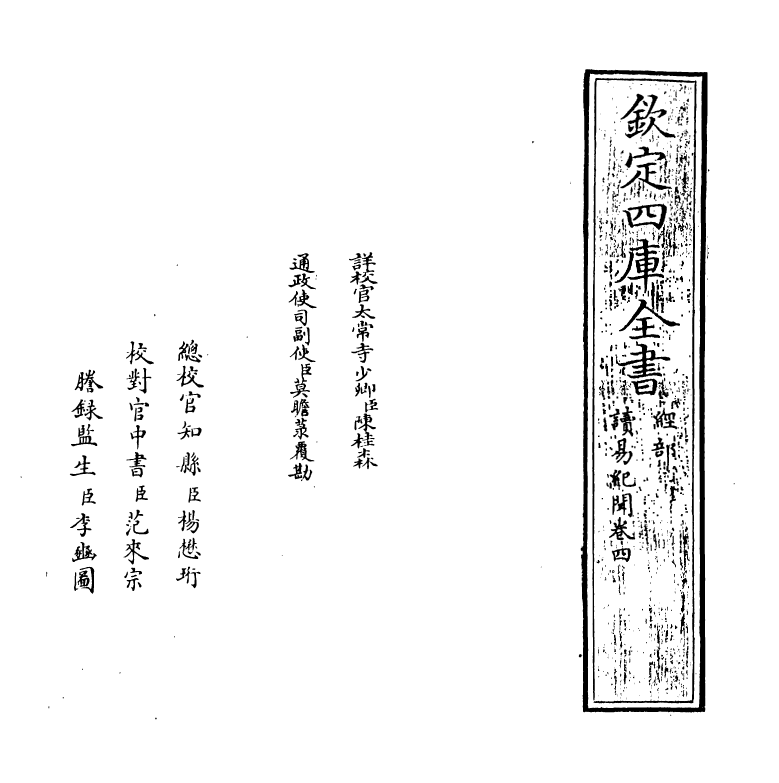 欽定四庫全書
經部
讀易紀聞卷四
詳校官太常寺少卿臣陳桂森
通政使司副使臣莫瞻菉覆勘
總校官知縣臣楊懋珩
校對官中書臣范來宗
謄録監生臣李圖